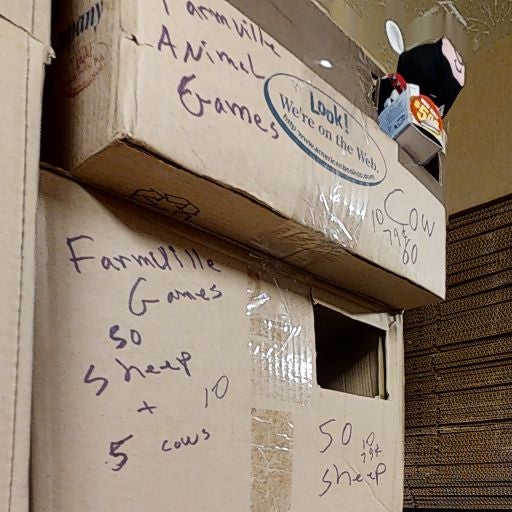 pany
Farmville
Animal
Games
Look!
We're on the Web.
http:www.americanbookco.com
$5
Cow
10
79¢
60
Farmville
Games
50
sheep
+ 10
5 cows
50 10
79¢
sheep